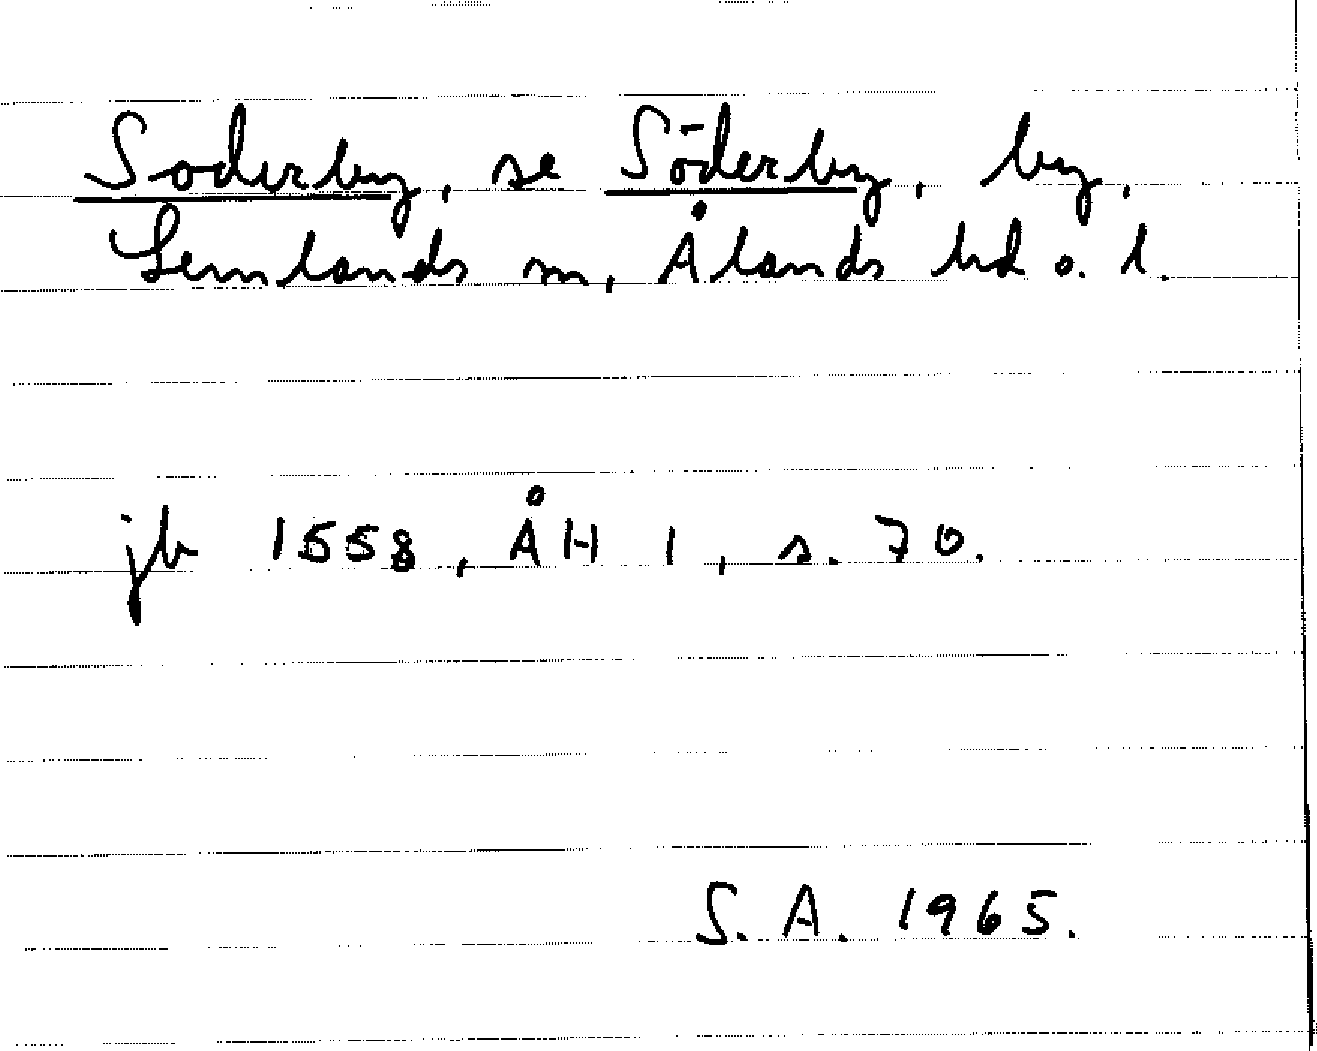 Soderby, se Söderby, by,
Lemlands sn, Ålands hd o. l.
jb 1558, ÅH 1, s. 70.
S. A. 1965.